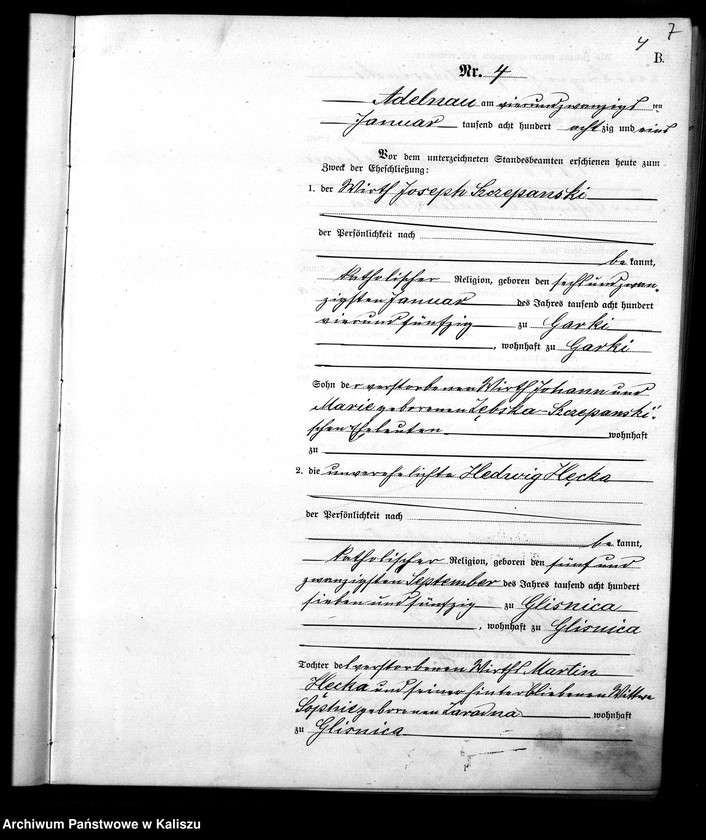 7
4
B.
Nr. 4
Adelnau am vierundzwanzigsten
Januar tausend acht hundert achtzig und eins
Vor dem unterzeichneten Standesbeamten erschienen heute zum
Zweck der Eheschließung:
1. der Wirth Joseph Szczepanski
der Persönlichkeit nach
bekannt,
katholischer Religion, geboren den sechsundzwan-
zigsten Januar des Jahres tausend acht hundert
vierundfünfzig zu Garki
, wohnhaft zu Garki
Sohn der verstorbenen Wirth Johann und
Marie geborenen Szczepanski'
schen Eheleuten wohnhaft
zu
2. die unverehelichte Hedwig Hęcka
der Persönlichkeit nach
bekannt,
katholischer Religion, geboren den fünfund
zwanzigsten September des Jahres tausend acht hundert
siebenundfünfzig zu Glisnica
, wohnhaft zu Glisnica
Tochter des verstorbenen Wirths Martin
Hęcka und seiner hinterbliebenen Wittwe
Sophie geborenen wohnhaft
zu Glisnica
Archiwum Państwowe w Kaliszu